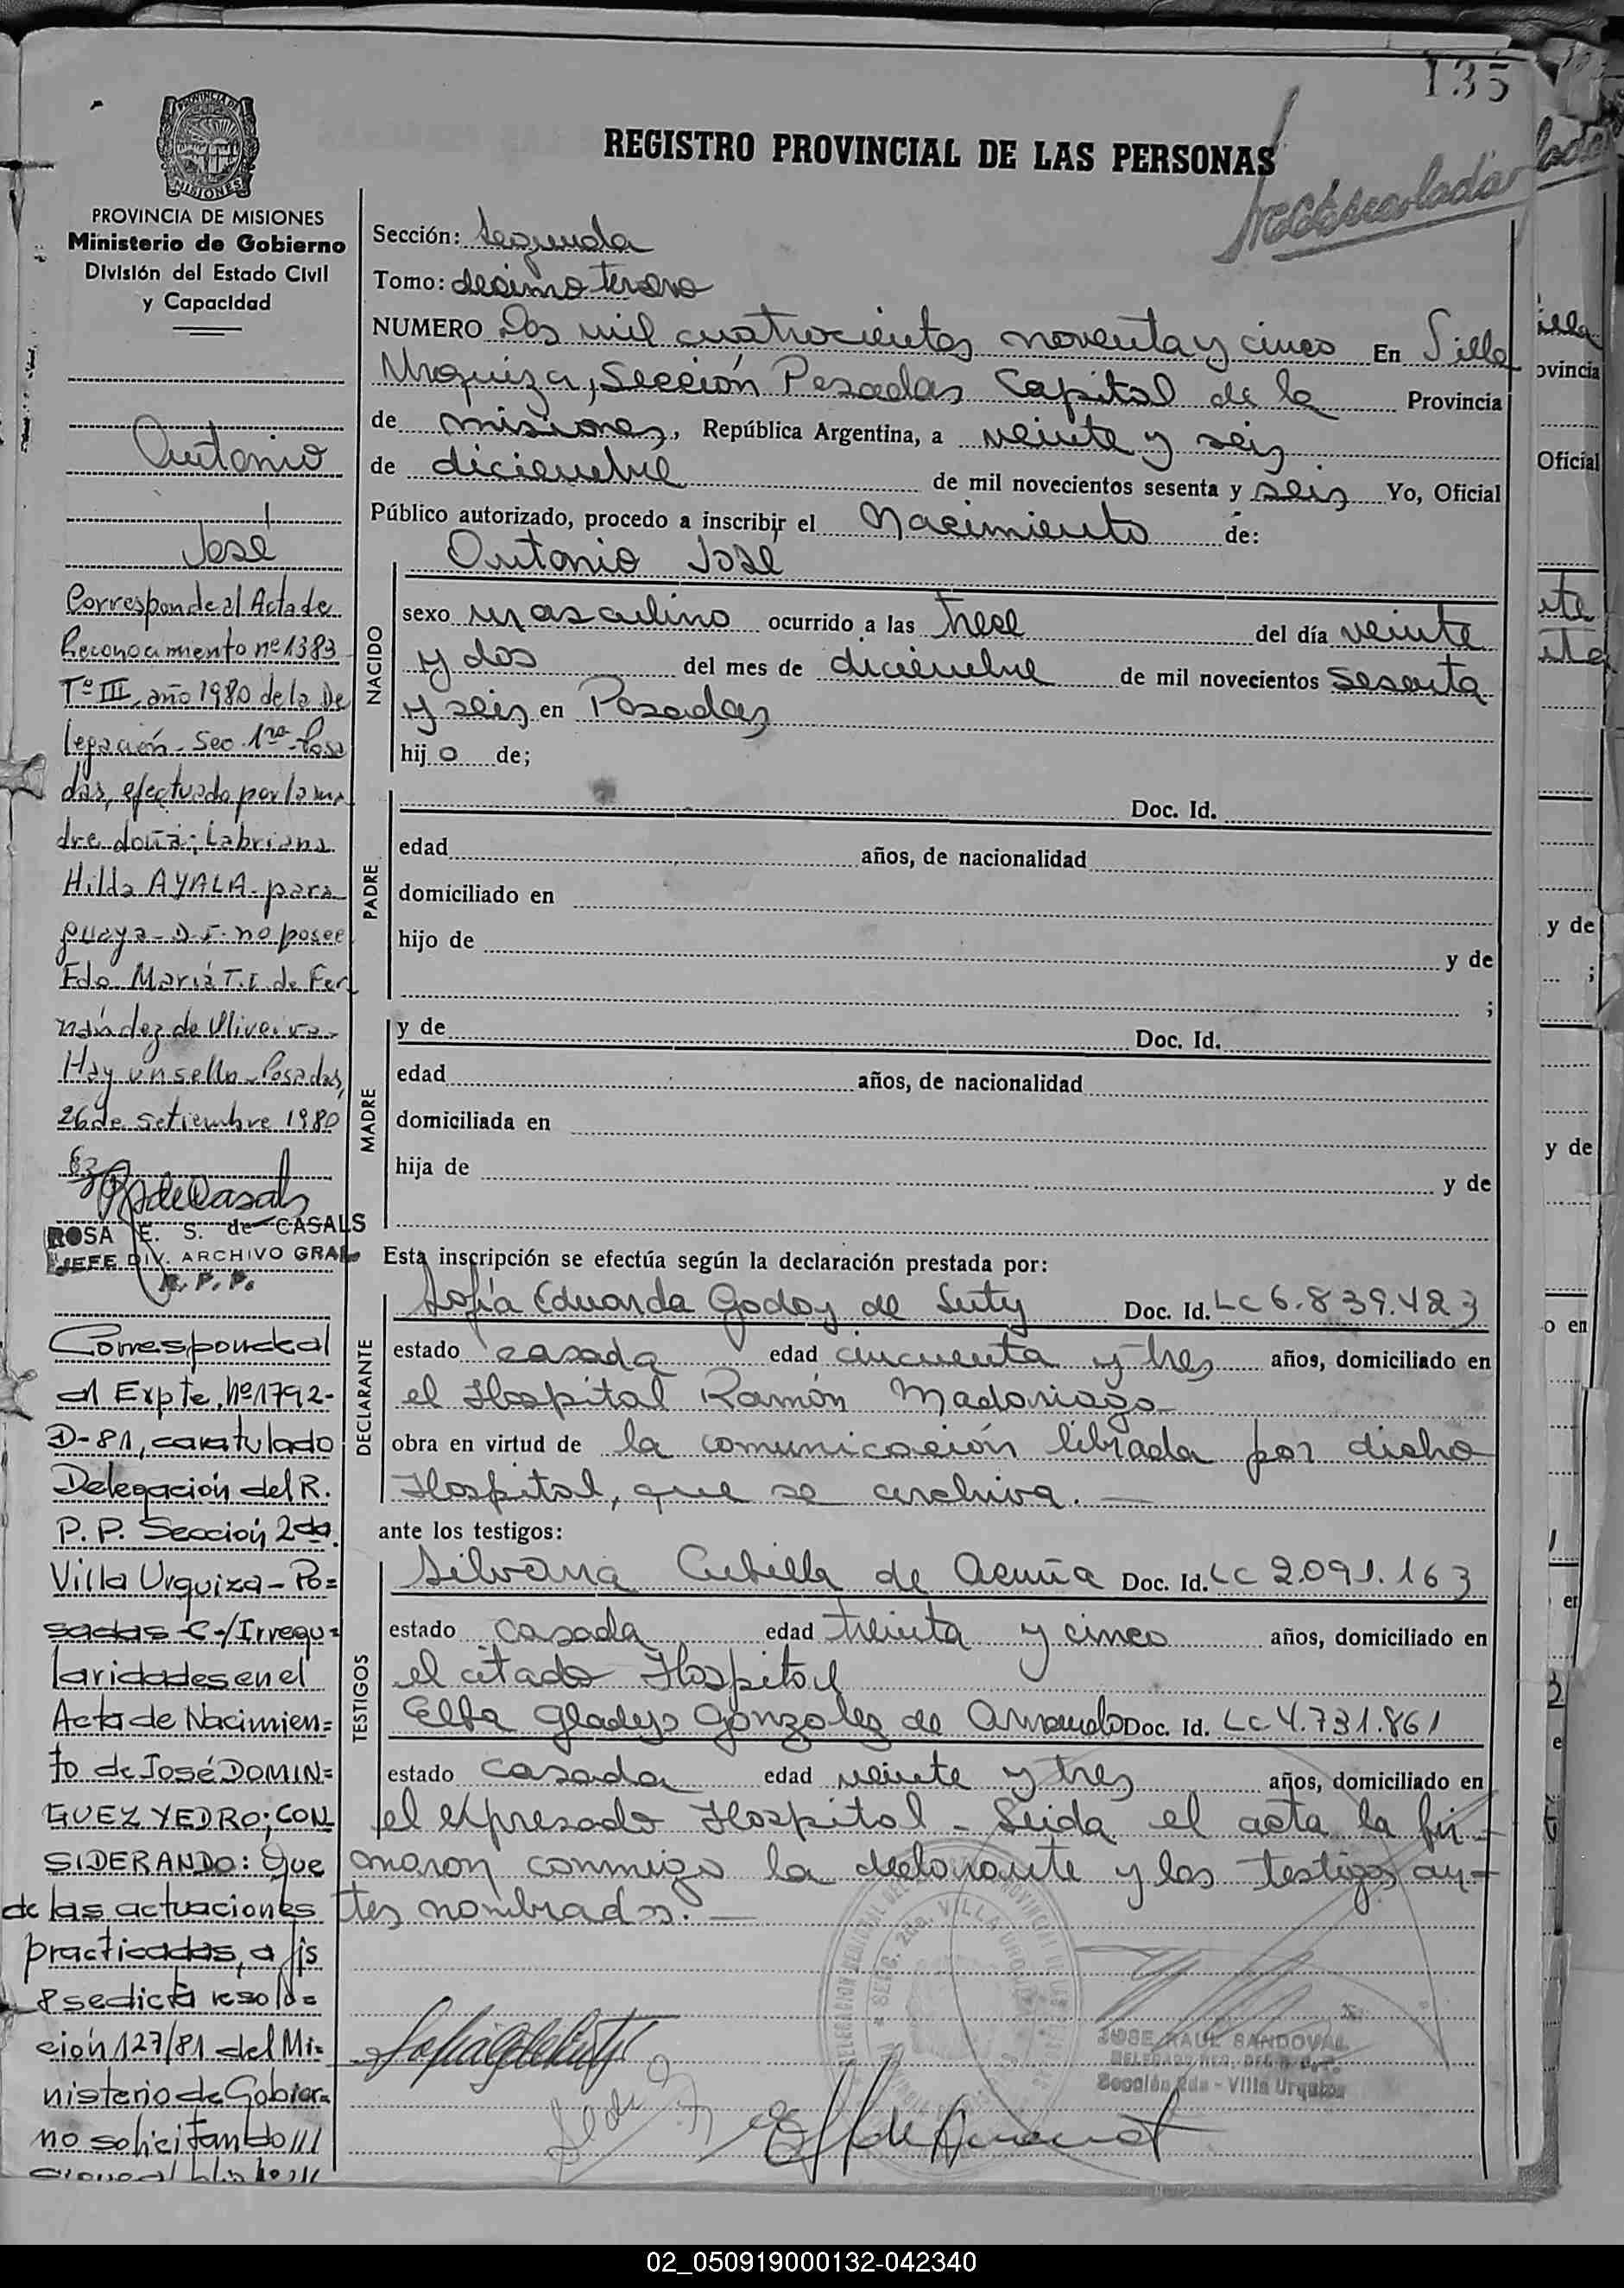 135
REGISTRO PROVINCIAL DE LAS PERSONAS
PROVINCIA DE MISIONES
PROVINCIA DE MISIONES
Ministerio de Gobierno
División del Estado Civil
y Capacidad
Antonio
José
Corresponde al Acta de
Reconocimiento nº 1383
Tº III, año 1980 de la De
legación - Sec. 1ra - Posa
das, efectuado por la ma
dre doña; Cabriana
Hilda AYALA - para
guaya - D.I. no posee
Fdo. María T.I. de Fer
nández de Oliveira -
Hay un sello - Posadas,
26 de setiembre 1980
ROSA E. S. de CASALS
JEFE DIV. ARCHIVO GRAL
R. P. P.
Corresponde al
al Expte. Nº 1792-
D-81, caratulado
Delegación del R.
P. P. Sección 2da.
Villa Urquiza - Po=
sadas C-/Irregu=
laridades en el
Acta de Nacimien=
to de José DOMIN=
GUEZ YEDRO; CON
SIDERANDO: Que
de las actuaciones
practicadas, a fjs
8 se dicta resolu=
ción 127/81 del Mi=
nisterio de Gobier=
no solicitando ///
Sección: Segunda
Tomo: decimo tercero
NUMERO Dos mil cuatrocientos noventa y cinco En Villa
Urquiza, Sección Posadas Capital de la Provincia
de misiones, República Argentina, a veinte y seis
de diciembre de mil novecientos sesenta y seis Yo, Oficial
Público autorizado, procedo a inscribir el Nacimiento de:
NACIDO
Antonio José
sexo masculino ocurrido a las trece del día veinte
y dos del mes de diciembre de mil novecientos sesenta
y seis en Posadas
hijo de;
PADRE
Doc. Id.
edad años, de nacionalidad
domiciliado en
hijo de y de
;
MADRE
y de Doc. Id.
edad años, de nacionalidad
domiciliada en
hija de y de
Esta inscripción se efectúa según la declaración prestada por:
DECLARANTE
Sofía Eduarda Godoy de Doc. Id. LC 6.839.423
estado casada edad cincuenta y tres años, domiciliado en
el Hospital Ramón Madariaga
obra en virtud de la comunicación librada por dicho
Hospital, que se archiva. —
ante los testigos:
TESTIGOS
Silvana Cubilla de Acuña Doc. Id. LC 2.091.163
estado casada edad treinta y cinco años, domiciliado en
el citado Hospital
Elba Gladys Gonzalez de Doc. Id. LC 4.731.861
estado casada edad veinte y tres años, domiciliado en
el expresado Hospital - Leida el acta la fir-
maron conmigo la declarante y los testigos an-
tes nombrados. —
JOSE RAUL SANDOVAL
Sección 2da - Villa Urquiza
ovincia
Oficial
y de
;
y de
o en
02_050919000132-042340